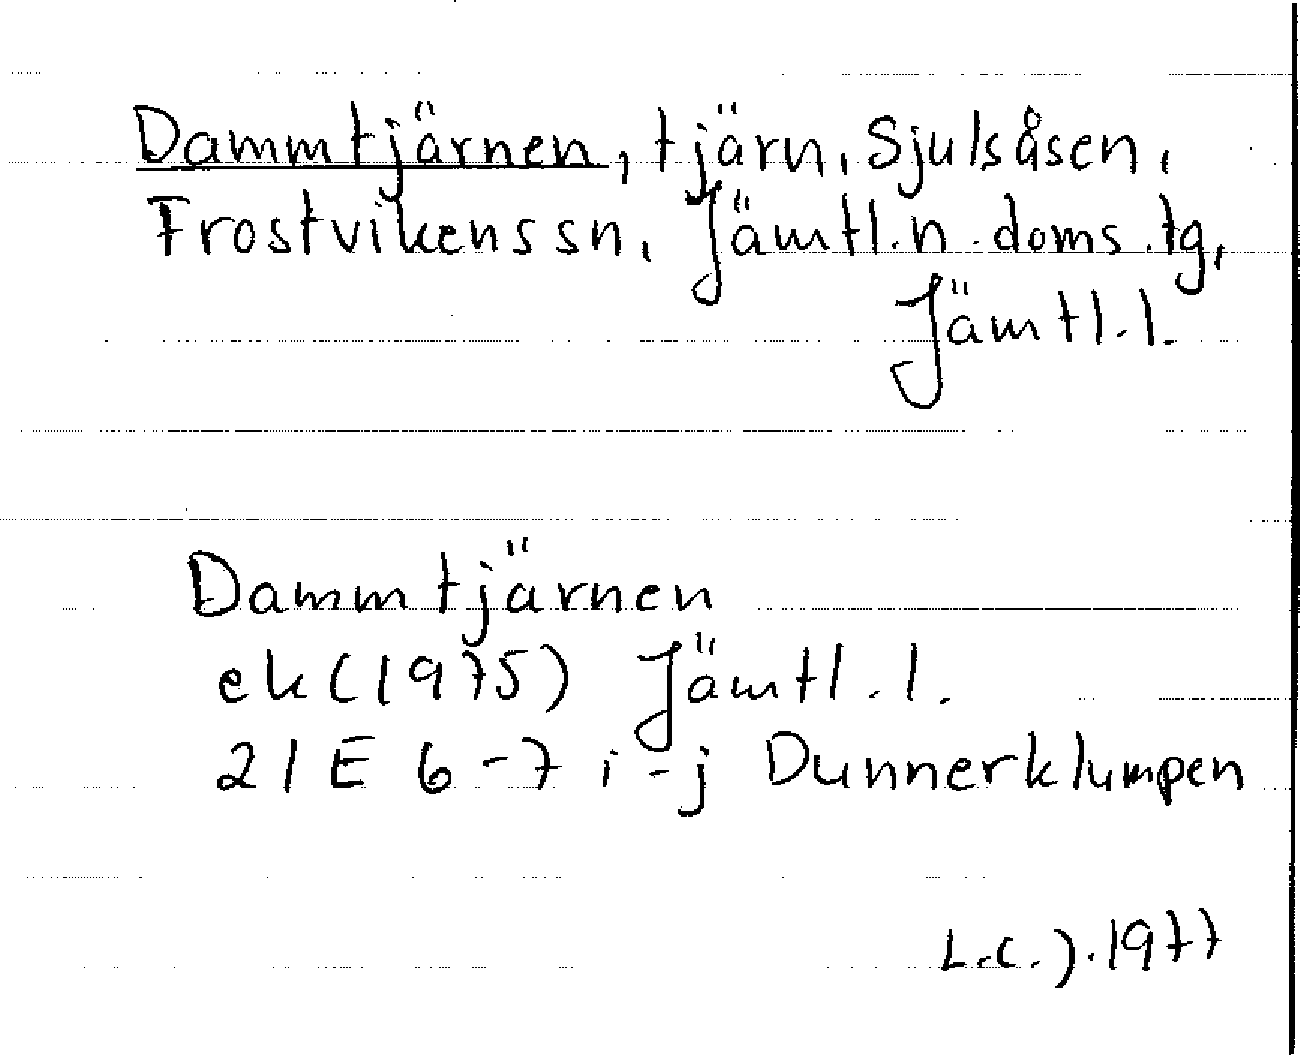 Dammtjärnen, tjärn, Sjulsåsen,
Frostvikens sn, Jämtl. n. doms. tg,
Jämtl. l.
Dammtjärnen
ek (1975) Jämtl. l.
21E 6-7 i-j Dunnerklumpen
L.C.J. 1977